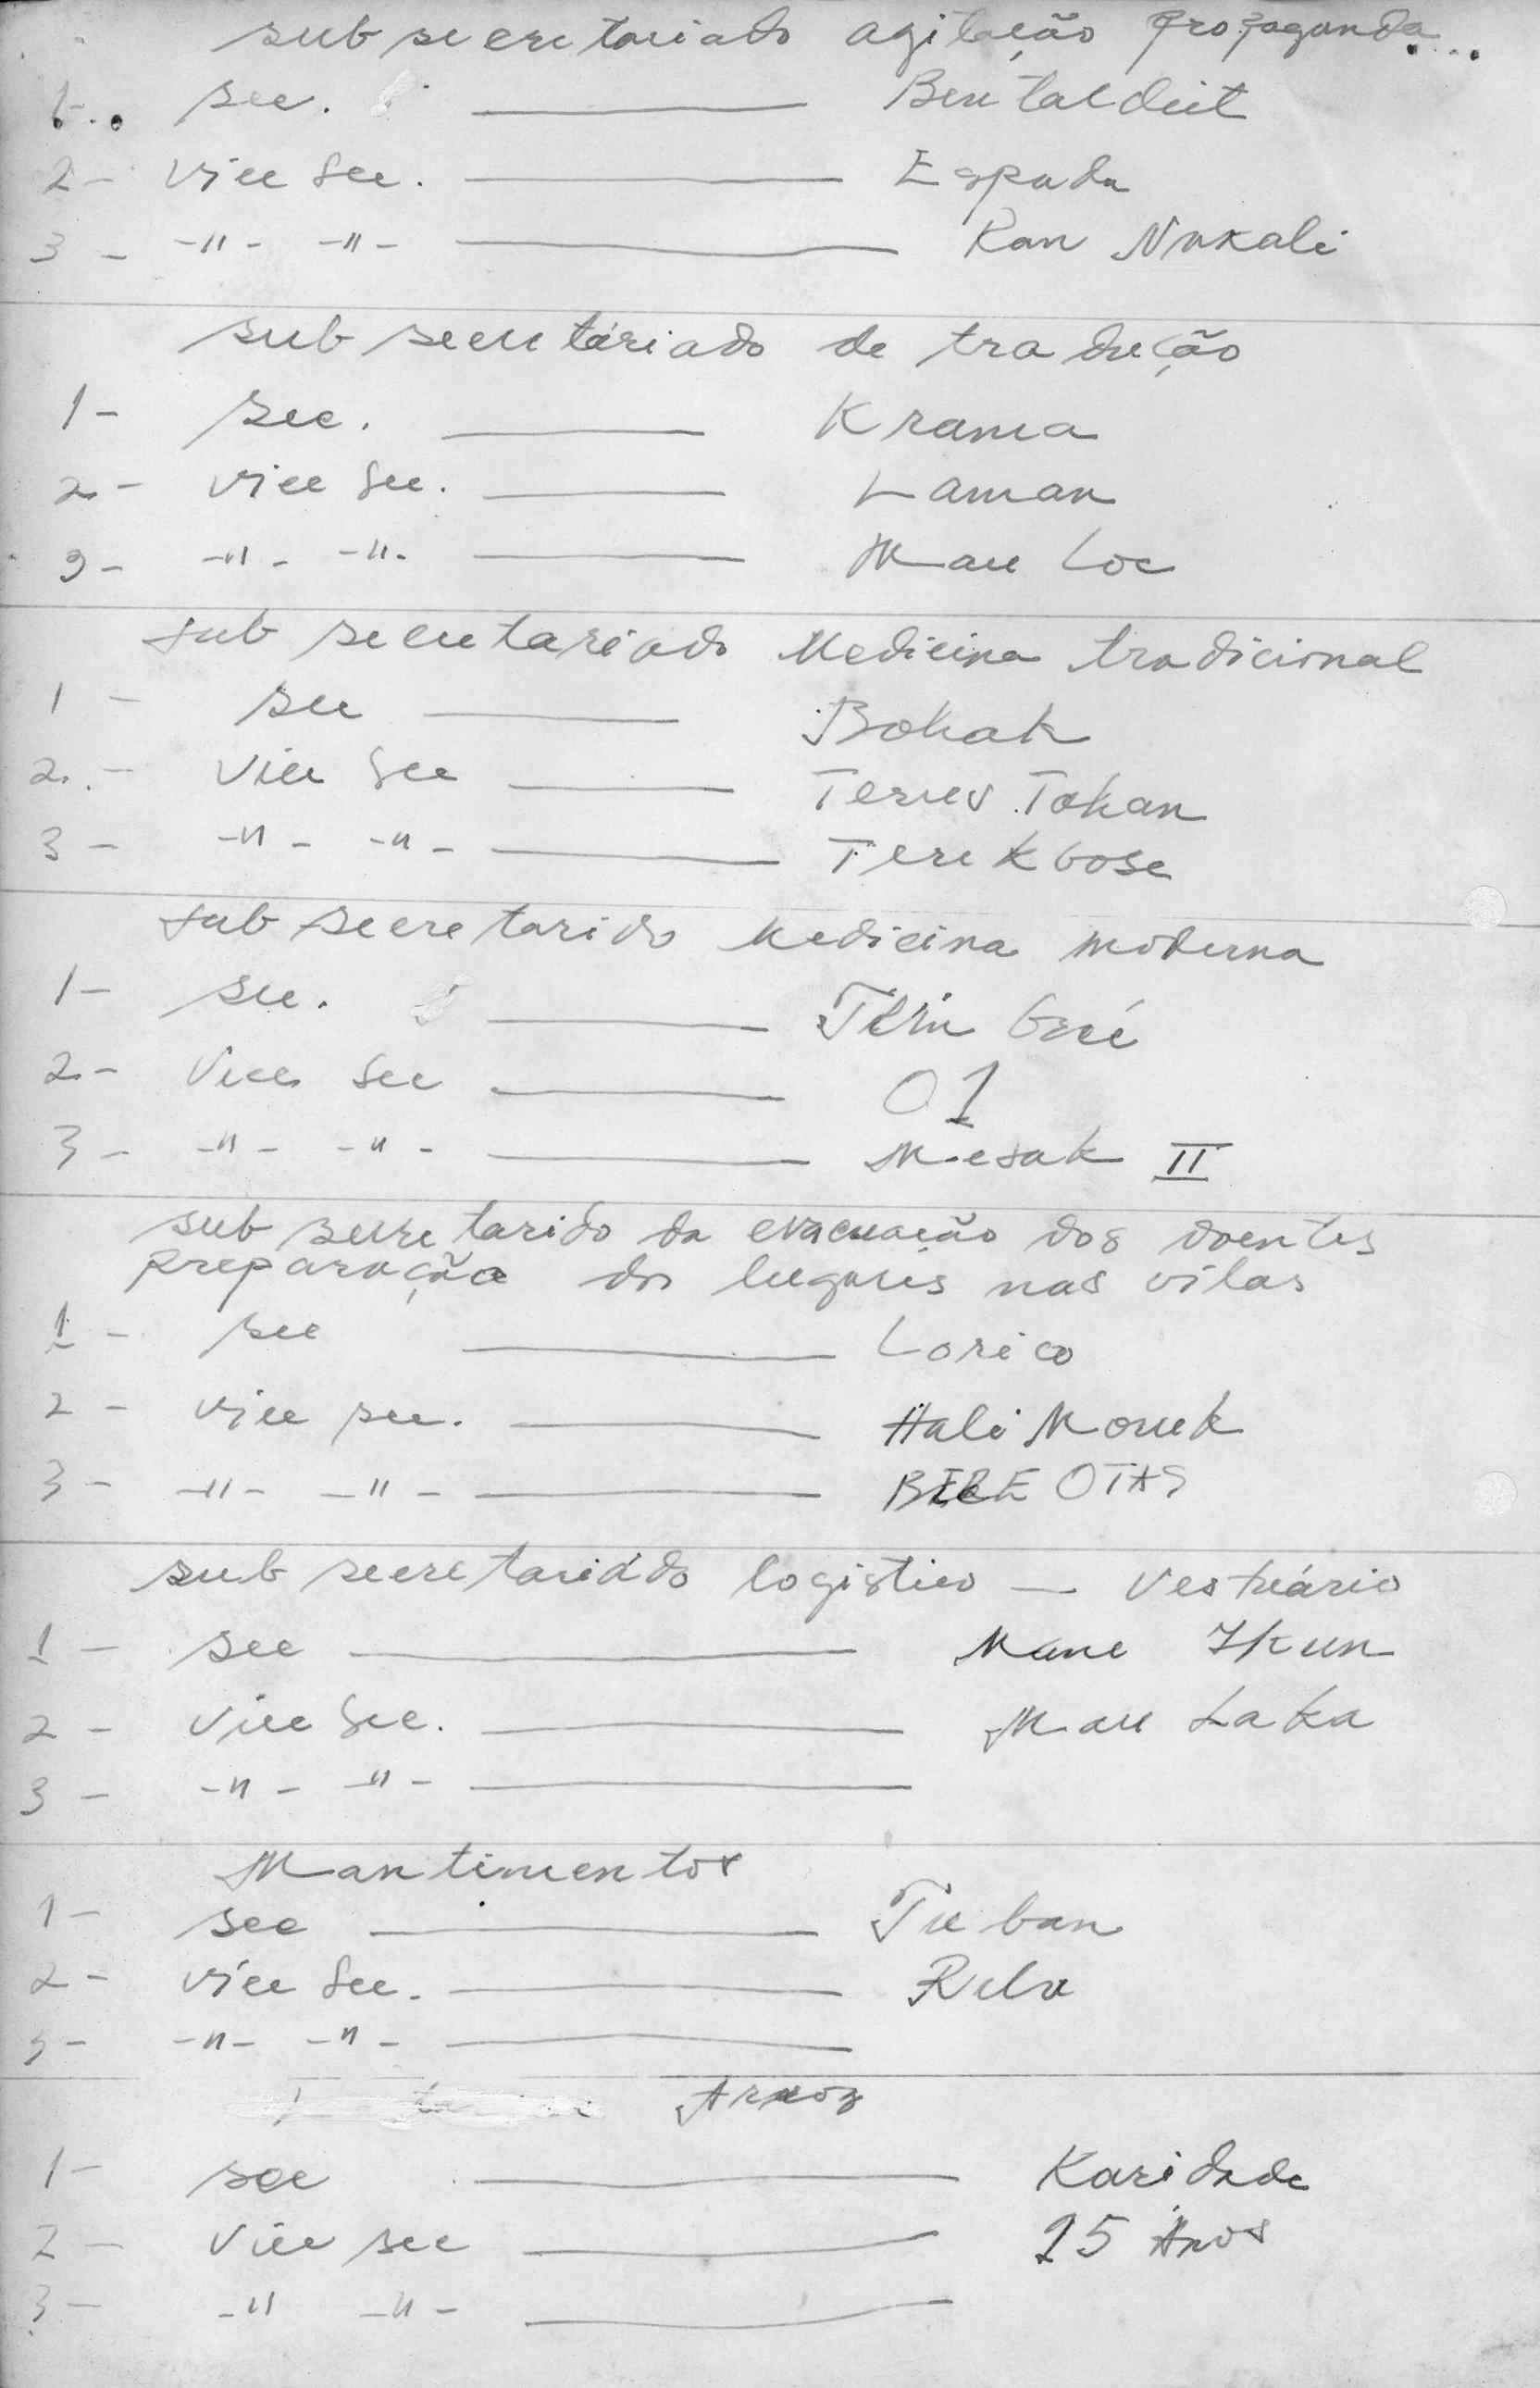 sub secretariado agitação propaganda...
1 - sec. ——— Ben tal deit
2 - vice sec. ——— Espada
3 - -"- -"- ——— Ran Nakali
sub secretáriado de tradução
1 - sec. ——— Krama
2 - vice sec. ——— Laman
3 - -"- -"- ——— Mau Loc
sub secretariado Medicina tradicional
1 - sec ——— Bohak
2 - vice sec ——— Terus Tohan
3 - -"- -"- ——— Terekbose
sub secretarido Medicina moderna
1 - sec. ———
2 - Vice sec ——— 01
3 - -"- -"- ——— Mesak II
sub secretarido da evacuação dos doentes
preparação dos lugares nas vilas
1 - sec ——— Lorico
2 - vice sec. ——— Hali Moruk
3 - -"- -"- ——— BERE OTAS
sub secretariádo logistico — Vestuário
1 - sec ——— Mane Ikun
2 - vice sec. ——— Mau Laka
3 - -"- -"- ———
Mantimentos
1 - sec ——— Tuban
2 - vice sec. ——— Rela
3 - -"- -"- ———
Arroz
1 - sec ——— Karidade
2 - vice sec ——— 25 Anos
3 - -" -"- ———